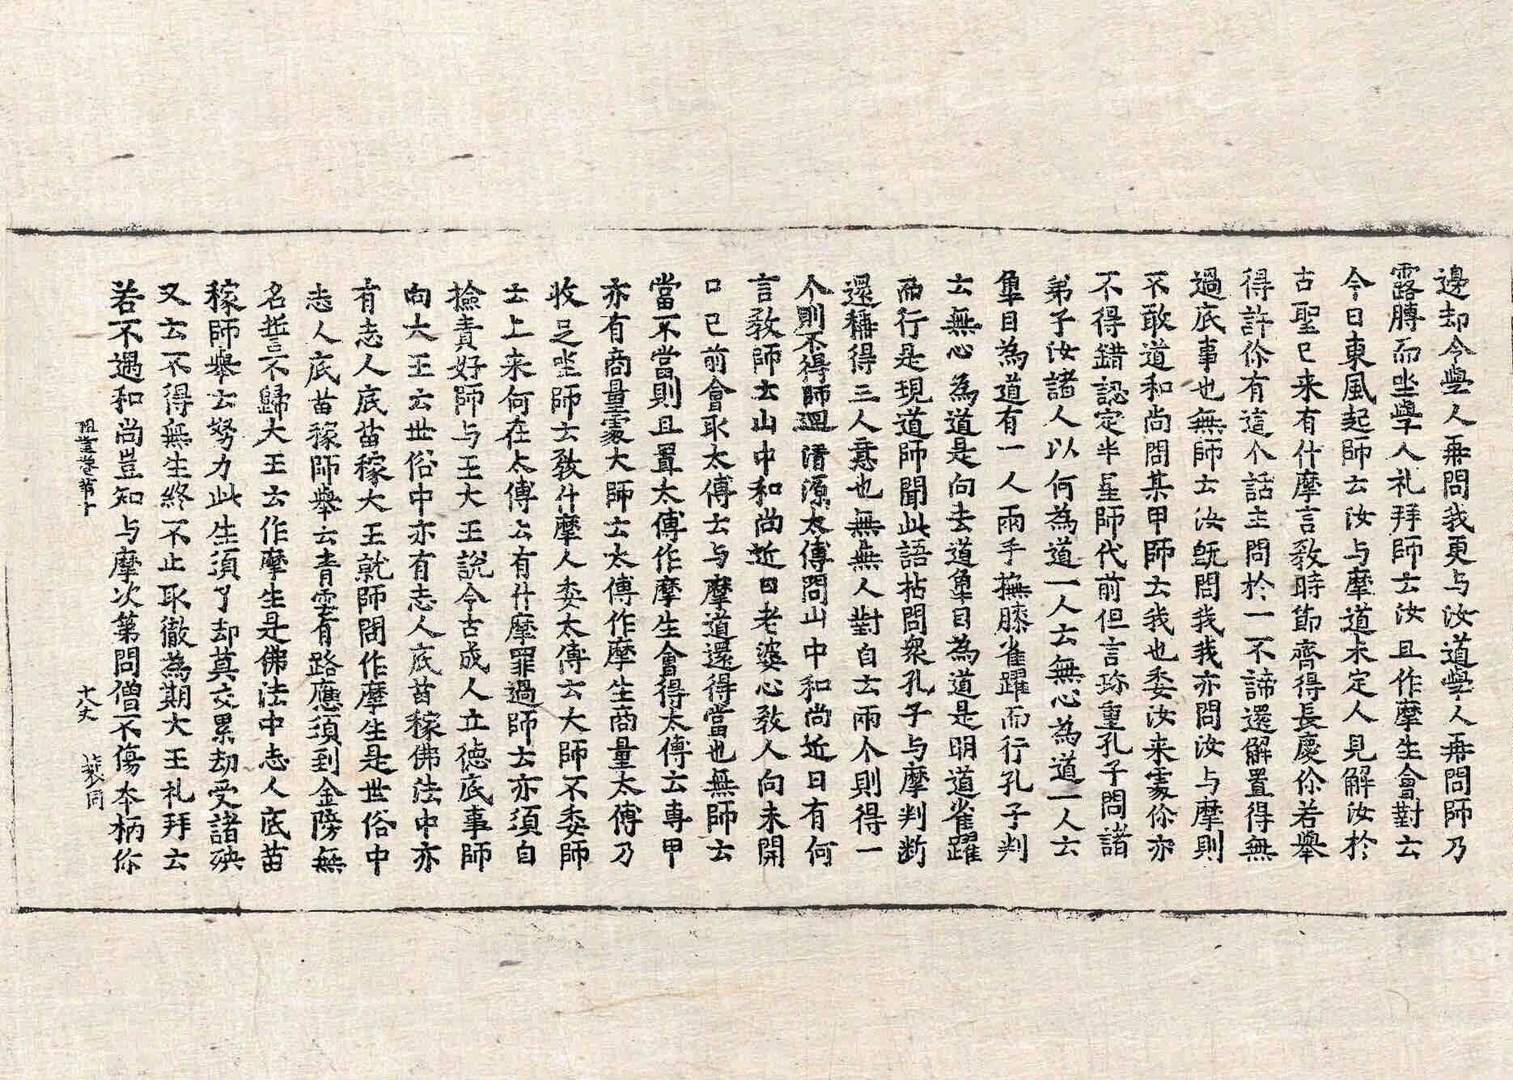 邊却令學人再問我更与汝道學人再問師乃
露膊而坐學人礼拜師云汝且作摩生會對云
今日東風起師云汝与摩道未定人見解汝於
古聖已来有什摩言教時節齊得長慶你若舉
得許你有這个話主問於一不諦還解置得無
過底事也無師云汝既問我我亦問汝与摩則
不敢道和尚問某甲師云我也委汝来處你亦
不得錯認定半星師代前但言珎重孔子問諸
弟子汝諸人以何為道一人云無心為道一人云
隼目為道有一人兩手撫膝雀躍而行孔子判
云無心為道是向去道隼目為道是明道雀躍
而行是現道師聞此語拈問衆孔子与摩判断
還稱得三人意也無無人對自云兩个則得一
个則不得師迴清源太傅問山中和尚近日有何
言教師云山中和尚近日老婆心教人向未開
口已前會取太傅云与摩道還得當也無師云
當不當則且置太傅作摩生會得太傅云專甲
亦有商量處大師云太傅作摩生商量太傅乃
收足坐師云教什摩人委太傅云大師不委師
云上来何在太傅云有什摩罪過師云亦須自
撿責好師与王大王說今古成人立德底事師
向大王云世俗中亦有志人底苗稼佛法中亦
有志人底苗稼大王就師問作摩生是世俗中
志人底苗稼師舉云青雲有路應須到金牓無
名誓不歸大王云作摩生是佛法中志人底苗
稼師舉云努力此生須了却莫交累劫受諸殃
又云不得無生終不止取徹為期大王礼拜云
若不遇和尚豈知与摩次第問僧不傷本柄你
祖堂卷第十 十八丈